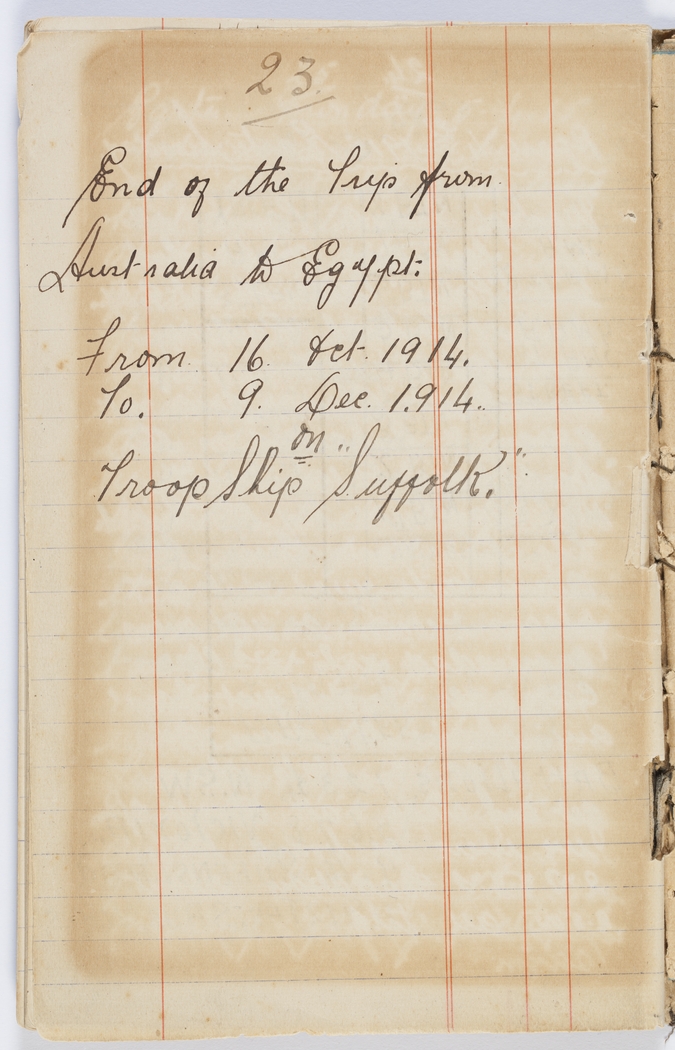 23.
End of the Trip from
Australia to Egypt.
From 16 Oct. 1914.
To. 9. Dec. 1.914.
on
Troop Ship "Suffolk."